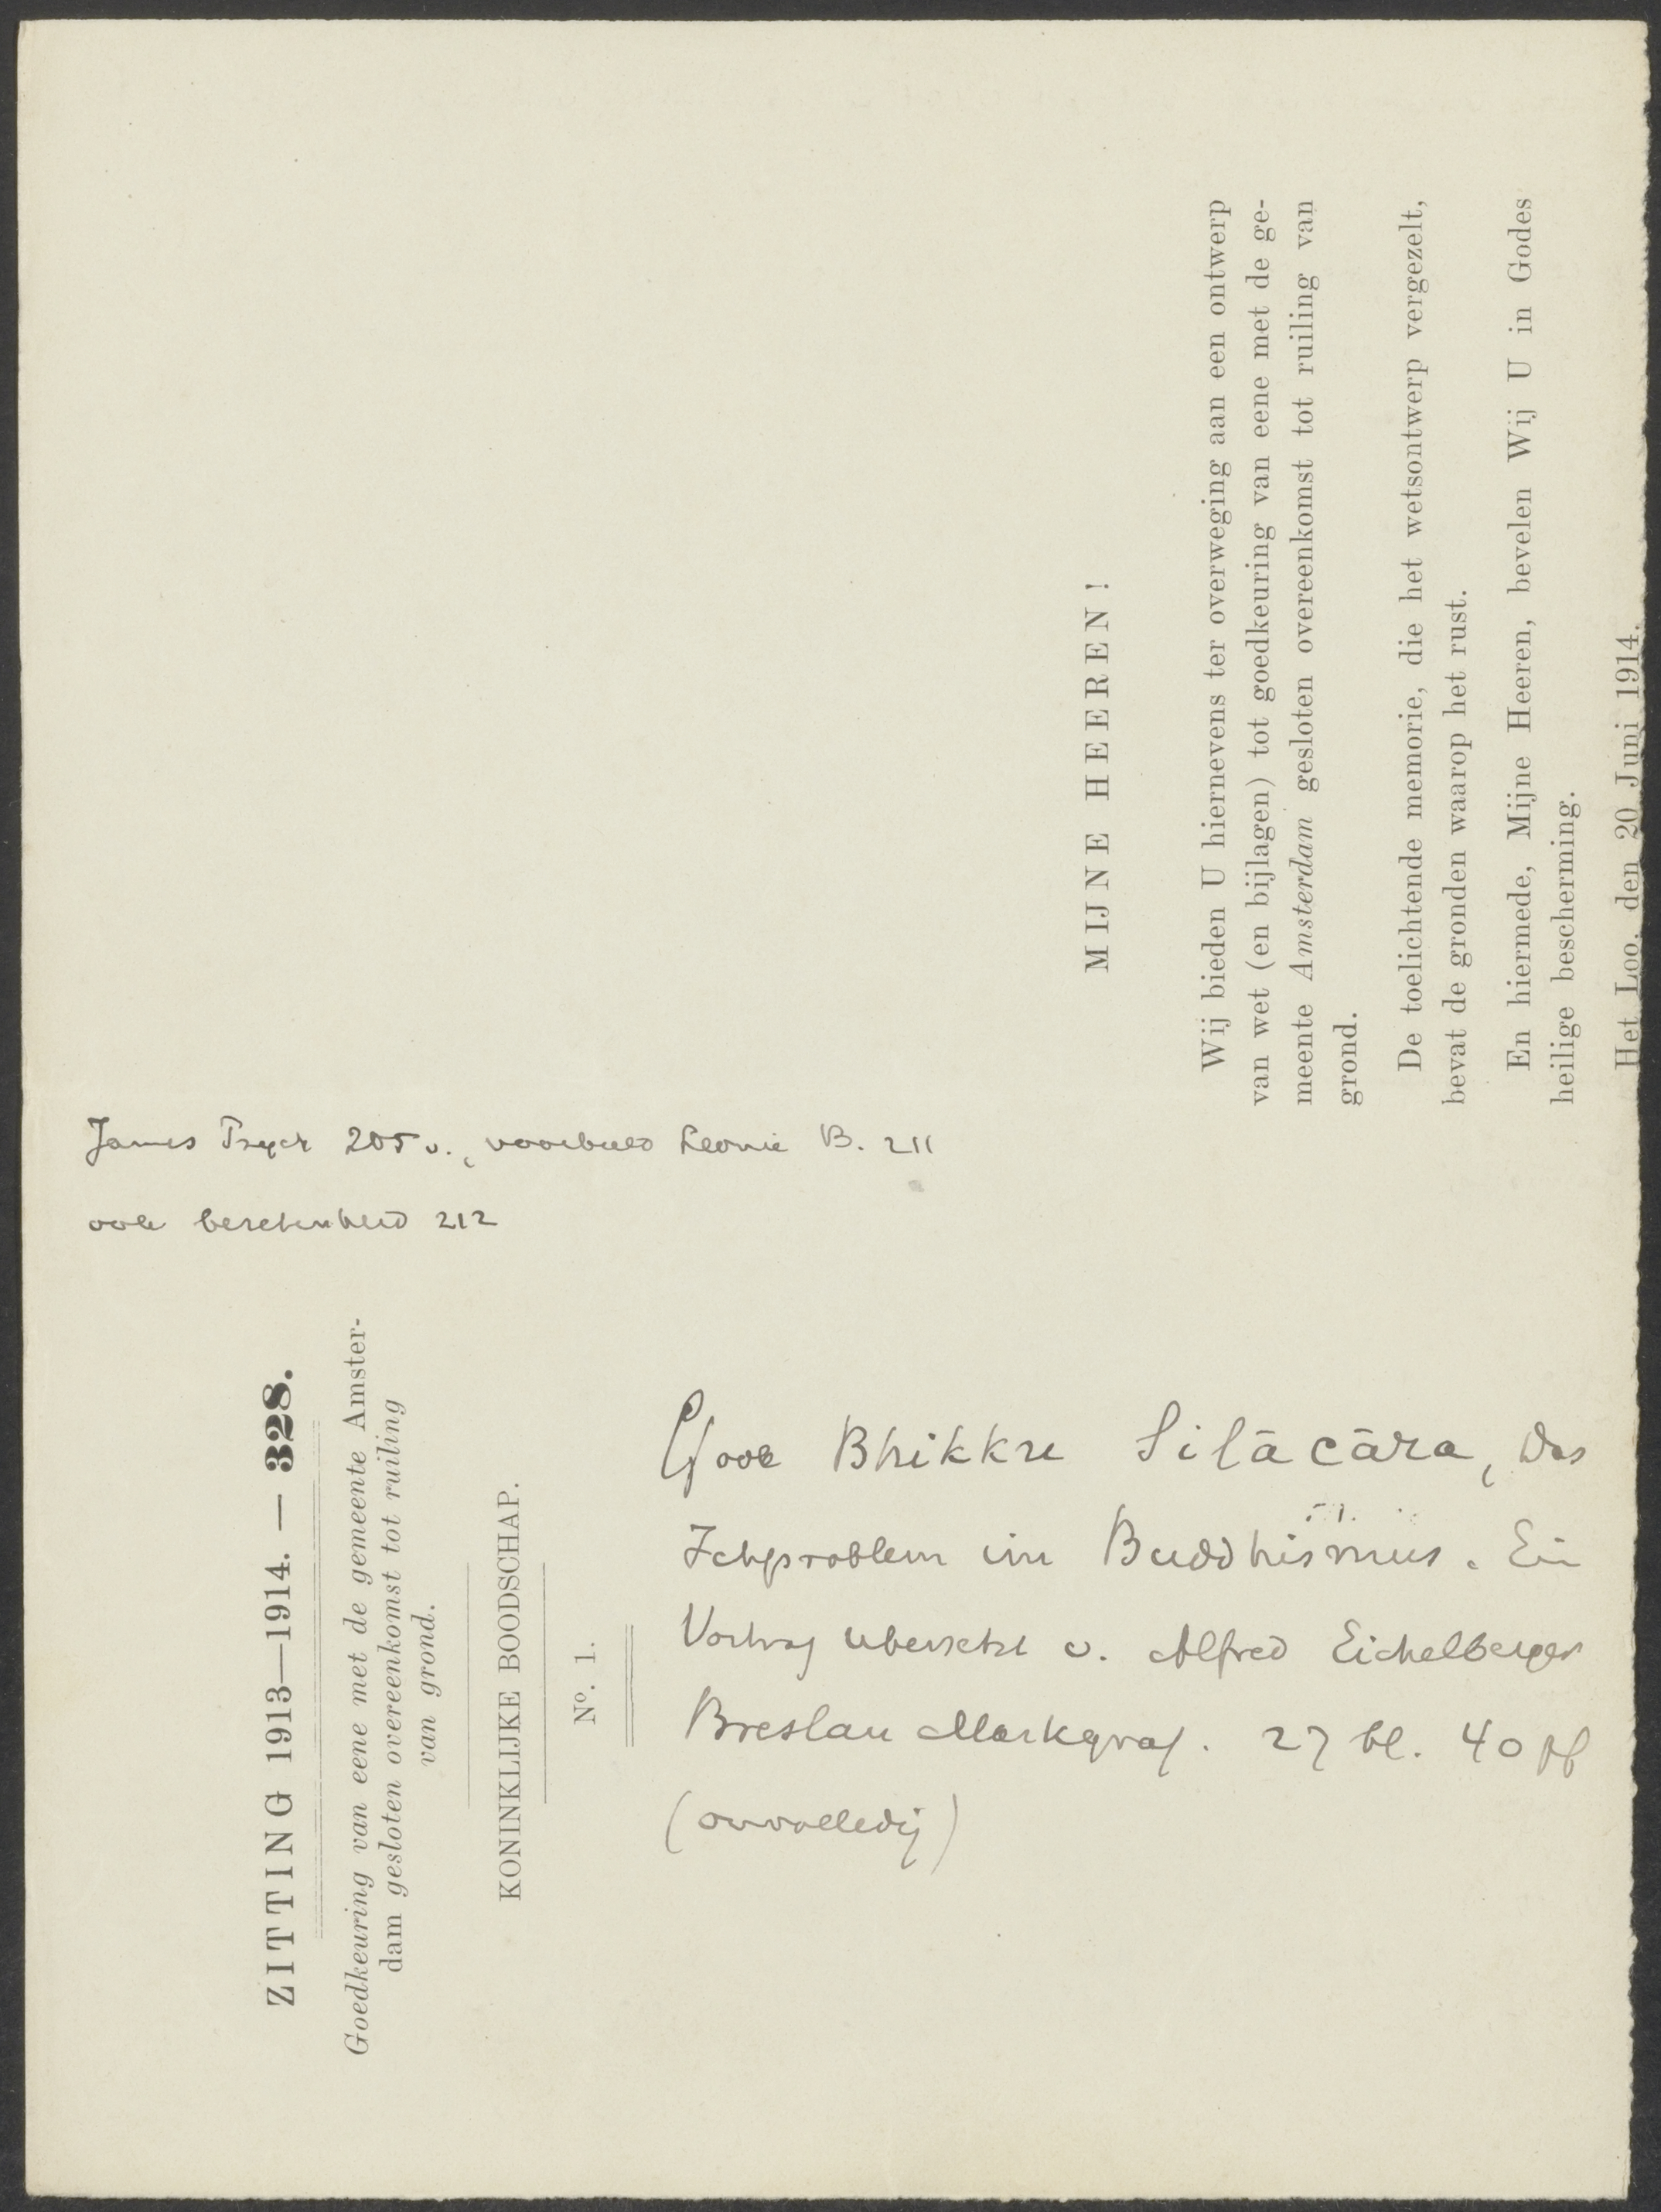 James Psych 205 v., voorbeeld Leonie B. 211
ook bescheidenheid 212
ZITTING 1913—1914. — 328.
Goedkeuring van eene met de gemeente Amster-
dam gesloten overeenkomst tot ruiling
van grond.
KONINKLIJKE BOODSCHAP.
Nº. 1.
MIJNE HEEREN!
Wij bieden U hiernevens ter overweging aan een ontwerp
van wet (en bijlagen) tot goedkeuring van eene met de ge-
meente Amsterdam gesloten overeenkomst tot ruiling van
grond.
De toelichtende memorie, die het wetsontwerp vergezelt,
bevat de gronden waarop het rust.
En hiermede, Mijne Heeren, bevelen Wij U in Godes
heilige bescherming.
Het Loo, den 20 Juni 1914.
ook Bhikku Silācāra, Das
Ichproblem im Buddhismus. Ein
Vortrag übersetzt v. Alfred Eichelberger
Breslau Markgraf. 27 bl. 40 pf
(onvolledig)